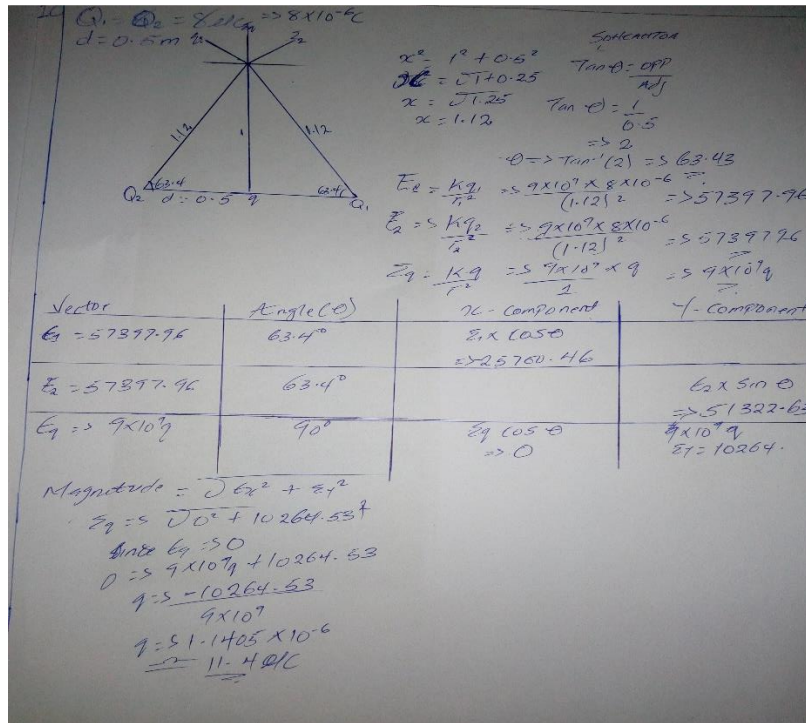 Q₁ = Q₂ = 8μC => 8×10⁻⁶C
d = 0.5m
E₂
1.12
1
1.12
63.4
63.4
Q₂
d = 0.5
q
Q₁
x² = 1² + 0.5²
x = √1+0.25
x = √1.25
x = 1.12
SOHCAHTOA
Tan θ = OPP/Adj
Tan θ = 1/0.5
=> 2
θ => Tan⁻¹(2) => 63.43
= Kq₁/r² => 9×10⁹ × 8×10⁻⁶/(1.12)² => 57397.96
E₂ => Kq₂/r₂² => 9×10⁹ × 8×10⁻⁶/(1.12)² => 57397.96
Eq = Kq/r² => 9×10⁹ × q/1 => 9×10⁹q
Vector Angle(θ) X-Component Y-Component
E₁ = 57397.96 63.4° E₁ x cos θ
=> 25760.46
E₂ = 57397.96 63.4° E₂ x sin θ
=> 51322.63
Eq => 9×10⁹q 90° Eq cos θ 9×10⁹q
=> 0 = 10264.
Magnitude = √Ex² + Ey²
Eq => √0² + 10264.53²
Since Eq => 0
0 => 9×10⁹q + 10264.53
q => -10264.53
9×10⁹
q => 1.1405 ×10⁻⁶
11.4